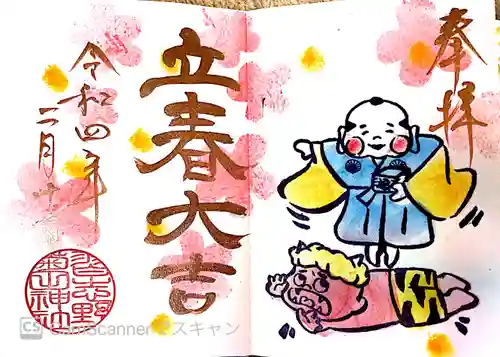 奉拝
立春大吉
令和四年
二月十
CS CamScannerでスキャン